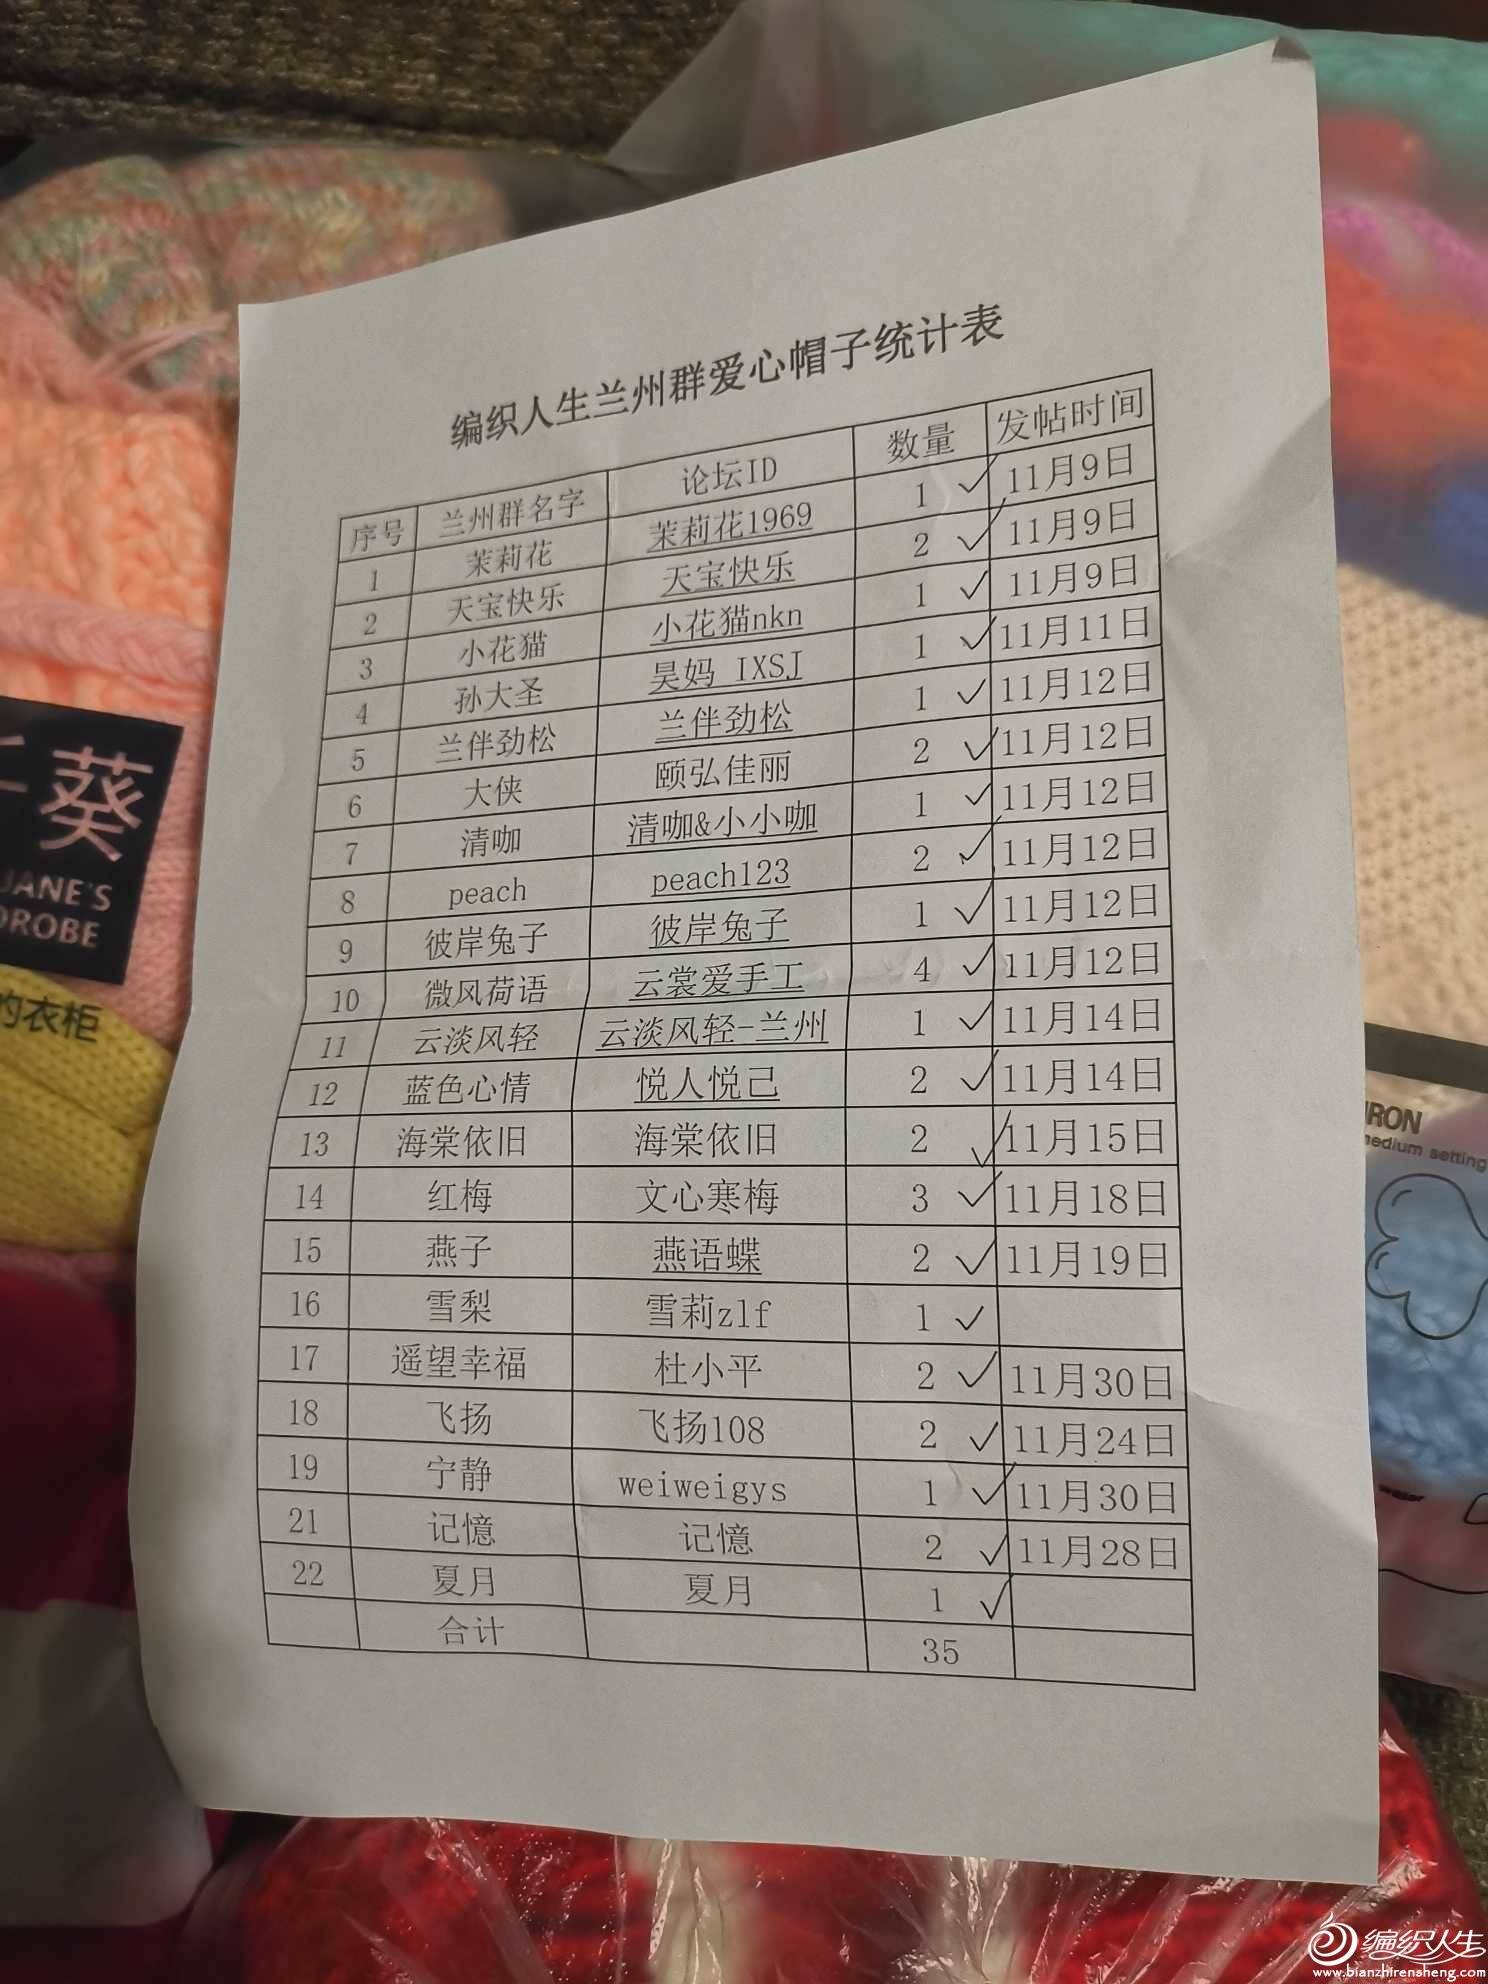 编织人生兰州群爱心帽子统计表
序号 兰州群名字 论坛ID 数量 发帖时间
1 茉莉花 茉莉花1969 1 ✓ 11月9日
2 天宝快乐 天宝快乐 2 ✓ 11月9日
3 小花猫 小花猫nkn 1 ✓ 11月9日
4 孙大圣 昊妈 IXSJ 1 ✓ 11月11日
5 兰伴劲松 兰伴劲松 1 ✓ 11月12日
6 大侠 颐弘佳丽 2 ✓ 11月12日
7 清咖 清咖&小小咖 1 ✓ 11月12日
8 peach peach123 2 ✓ 11月12日
9 彼岸兔子 彼岸兔子 1 ✓ 11月12日
10 微风荷语 云裳爱手工 4 ✓ 11月12日
11 云淡风轻 云淡风轻-兰州 1 ✓ 11月14日
12 蓝色心情 悦人悦己 2 ✓ 11月14日
13 海棠依旧 海棠依旧 2 ✓ 11月15日
14 红梅 文心寒梅 3 ✓ 11月18日
15 燕子 燕语蝶 2 ✓ 11月19日
16 雪梨 雪莉zlf 1 ✓
17 遥望幸福 杜小平 2 ✓ 11月30日
18 飞扬 飞扬108 2 ✓ 11月24日
19 宁静 weiweigys 1 ✓ 11月30日
21 记憶 记憶 2 ✓ 11月28日
22 夏月 夏月 1 ✓
合计 35
葵
JANE'S
DROBE
的衣柜
IRON
medium setting
water
编织人生
www.bianzhirensheng.com